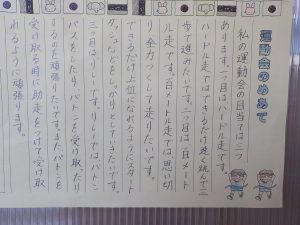 運動会のめあて
私の運動会の目当ては三つ
あります。一つ目はハードル走です。
ハードル走ではできるだけ速く跳んで三
歩で進みたいです。二つ目は百メート
ル走です。百メートル走では思い切
り全力で走りたいです。
できるだけ上位になれるようにスタート
ダッシュなどをしっかりとしていきたいです。
三つ目はリレーです。リレーではバトン
パスをしたり、バトンを受け取ったり
するのを頑張りたいです。またバトンを
受け取る時に助走をつけて受け取
れるように頑張ります。